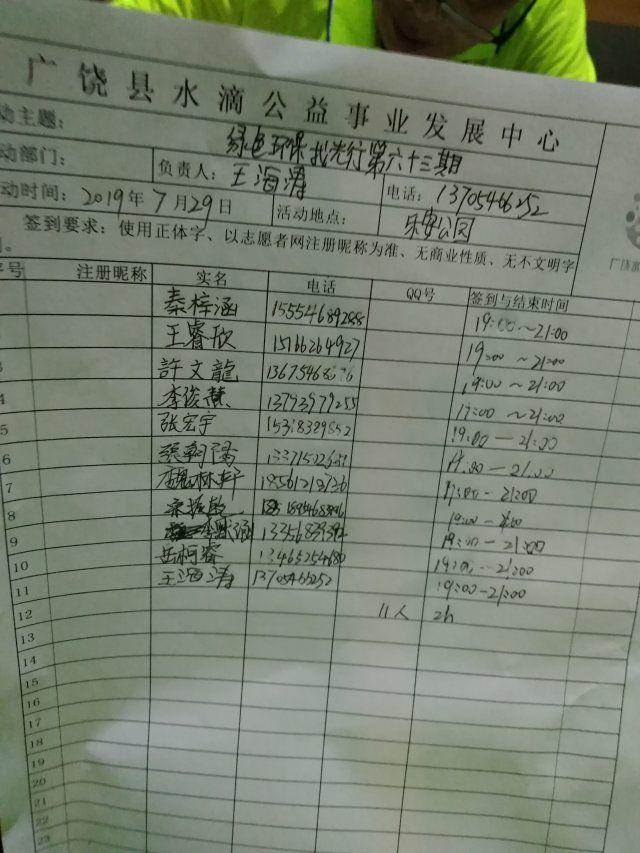 广饶县水滴公益事业发展中心
动主题: 绿色环保我先行第六十三期
动部门: 负责人: 王海涛 电话: 13705466252
动时间: 2019年7月29日 活动地点: 乐安公园
签到要求: 使用正体字、以志愿者网注册昵称为准、无商业性质、无不文明字
序号 注册昵称 实名 电话 QQ号 签到与结束时间
秦梓涵 15554689288 19:00~21:00
王睿欣 15166264927 19:00~21:00
許文龍 19:00~21:00
4 李俊慧 13793979255 19:00~21:00
5 张宏宇 15318389852 19:00—21:00
6 19:00—21:00
7 魏林轩 18561218726 19:00-21:00
8 19:00-21:00
9 19:00-21:00
10 岳柯睿 13465254680 19:00-21:00
11 王海涛 13705466252 19:00-21:00
12 11人 2h
13
14
15
16
17
18
19
20
21
22
23